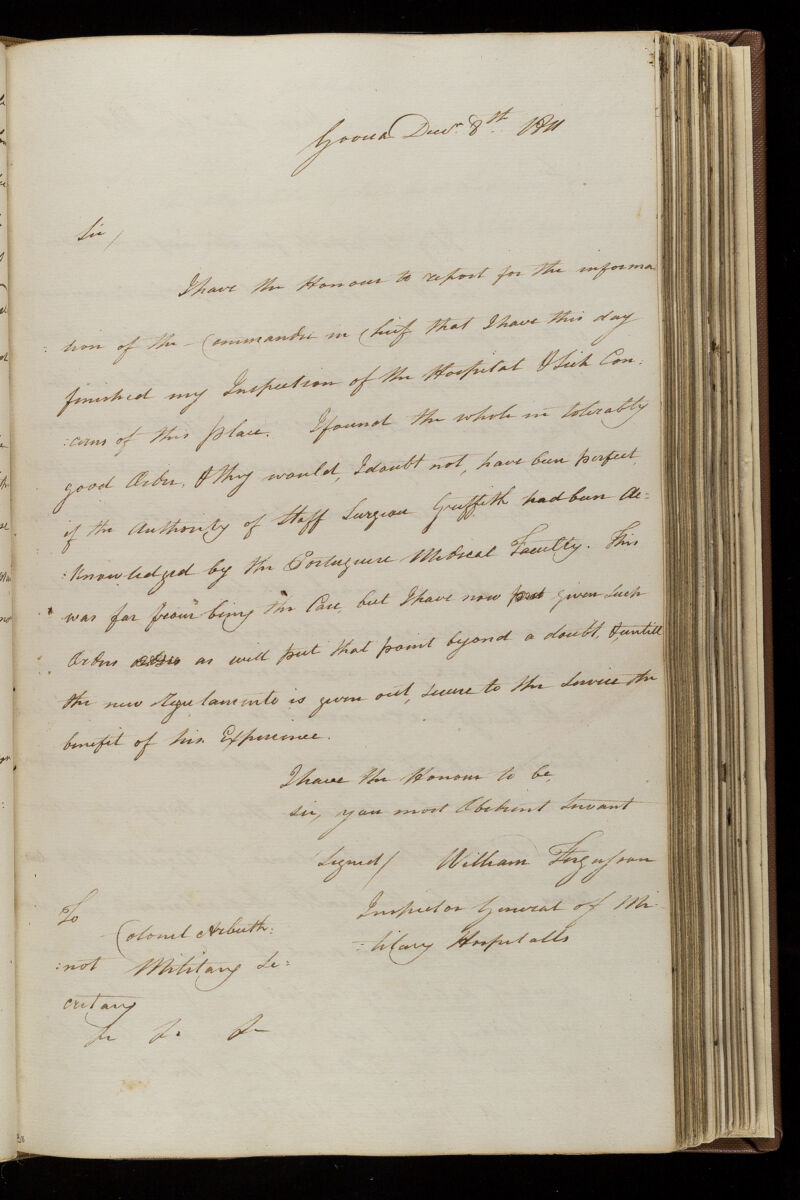 Govea Decr. 8th. 1811
Sir,
I have the Honour to report for the informa
tion of the Commander in Chief that I have this day
finished my Inspection of the Hospital & Sick Con:
:cerns of this place. I found the whole in tolerably
good Order, & they would, I doubt not, have been perfect,
if the Authority of Staff Surgeon Griffith had been Ac:
:knowledged by the Portuguese Medical Faculty. This
was far from being the Case, but I have now put given such
Orders as will put that point beyond a doubt, & untill
the new Regulamento is given out, secure to the Service the
benefit of his Experience.
I have the Honour to be,
Sir, your most Obedient Servant
Signed/ William Fergusson
Inspector General of Mi
:litary Hospitalls
To
Colonel Arbuth:
:not Military Se:
cretary
&c &c &c